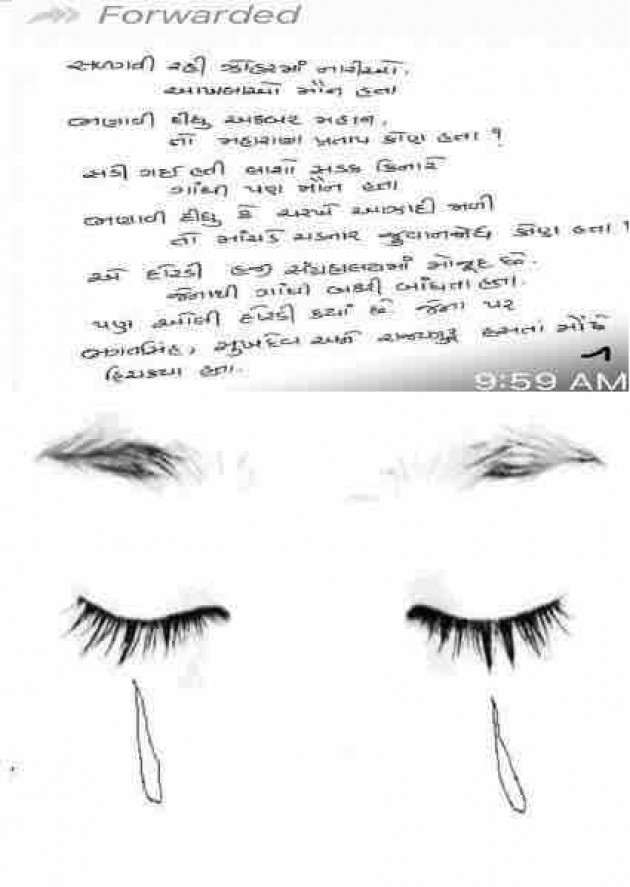 Forwarded
સળગતી રહી જૌહરમાં નારીઓ,
અખબારો મૌન હતા
ભણાવી દીધુ અકબર મહાન,
તો મહારાણા પ્રતાપ કોણ હતા ?
સડી ગઈ હતી લાશો સડક કિનારે
ગાંધી પણ મૌન હતા
ભણાવી દીધુ કે ચરખે આઝાદી મળી
તો ફાંસીએ ચડનાર જુવાનજોધ કોણ હતા ?
એ દોરડી હજી સંગ્રહાલયમાં મોજૂદ છે.
જેનાથી ગાંધી બકરી બાંધતા હતા.
પણ ઓલી દોરડી ક્યાં છે જેના પર
ભગતસિંહ, સુખદેવ અને રાજગુરૂ હસતાં મોંએ
હિચક્યા હતા.
9:59 AM